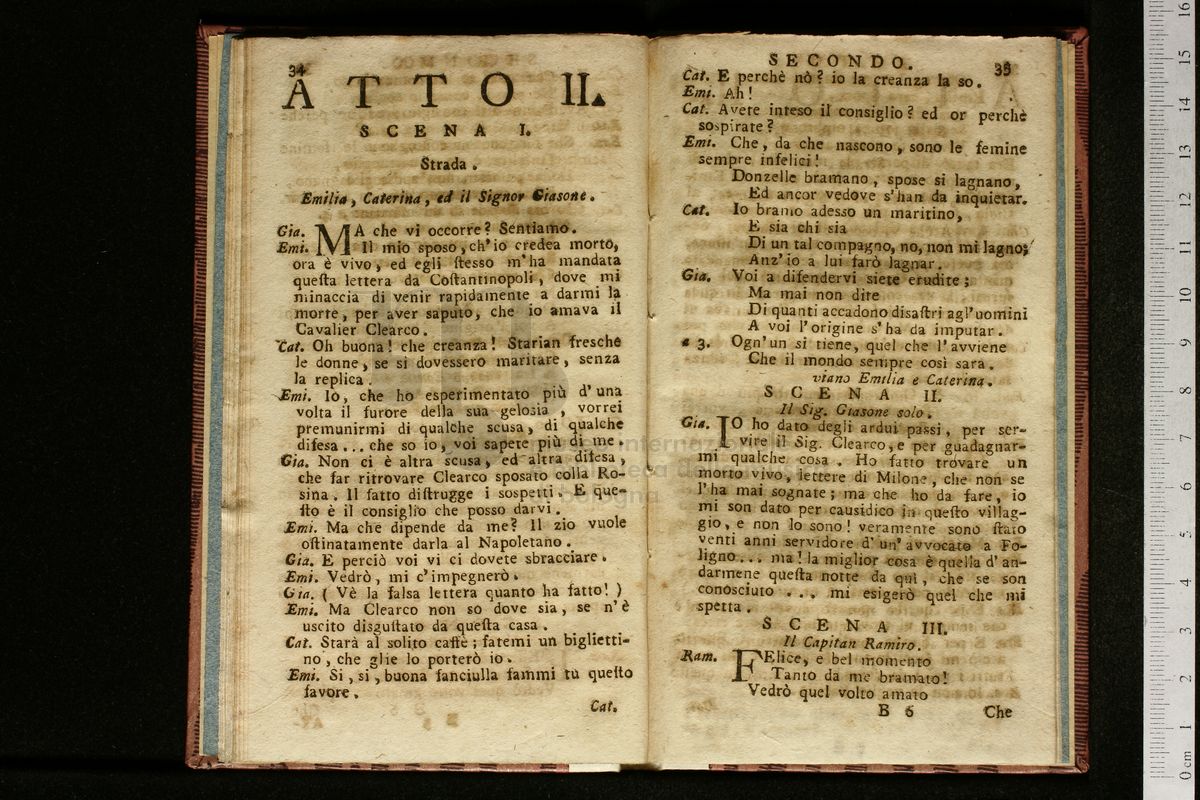 34
ATTO II.
SCENA I.
Strada.
Emilia, Caterina, ed il Signor Giasone.
Gia. MA che vi occorre? Sentiamo.
Emi. Il mio sposo, ch'io credea morto,
ora è vivo, ed egli ſtesso m'ha mandata
queſta lettera da Coſtantinopoli, dove mi
minaccia di venir rapidamente a darmi la
morte, per aver saputo, che io amava il
Cavalier Clearco.
Cat. Oh buona! che creanza! Starian fresche
le donne, se si dovessero maritare, senza
la replica.
Emi. Io, che ho esperimentato più d'una
volta il furore della sua gelosia, vorrei
premunirmi di qualche scusa, di qualche
difesa... che so io, voi sapete più di me.
Gia. Non ci è altra scusa, ed altra difesa,
che far ritrovare Clearco sposato colla Ro-
sina. Il fatto diſtrugge i sospetti. E que-
ſto è il consiglio che posso darvi.
Emi. Ma che dipende da me? Il zio vuole
oſtinatamente darla al Napoletano.
Gia. E perciò voi vi ci dovete sbracciare.
Emi. Vedrò, mi c'impegnerò.
Gia. (Vè la falsa lettera quanto ha fatto!)
Emi. Ma Clearco non so dove sia, se n'è
uscito disguſtato da queſta casa.
Cat. Starà al solito caffè; fatemi un biglietti-
no, che glie lo porterò io.
Emi. Si, si, buona fanciulla fammi tu queſto
favore.
Cat.
SECONDO. 35
Cat. E perchè nò? io la creanza la so.
Emi. Ah!
Cat. Avete inteso il consiglio? ed or perchè
sospirate?
Emi. Che, da che nascono, sono le femine
sempre infelici!
Donzelle bramano, spose si lagnano,
Ed ancor vedove s'han da inquietar.
Cat. Io bramo adesso un maritino,
E sia chi sia
Di un tal compagno, no, non mi lagno;
Anz'io a lui farò lagnar.
Gia. Voi a difendervi siete erudite;
Ma mai non dite
Di quanti accadono disaſtri agl'uomini
A voi l'origine s'ha da imputar.
a 3. Ogn'un si tiene, quel che l'avviene
Che il mondo sempre così sara.
viano Emilia e Caterina.
SCENA II.
Il Sig. Giasone solo.
Gia. IO ho dato degli ardui passi, per ser-
vire il Sig. Clearco, e per guadagnar-
mi qualche cosa. Ho fatto trovare un
morto vivo, lettere di Milone, che non se
l'ha mai sognate; ma che ho da fare, io
mi son dato per causidico in queſto villag-
gio, e non lo sono! veramente sono ſtato
venti anni servidore d'un'avvocato a Fo-
ligno... ma! la miglior cosa è quella d'an-
darmene queſta notte da qui, che se son
conosciuto ... mi esigerò quel che mi
spetta.
SCENA III.
Il Capitan Ramiro.
Ram. FElice, e bel momento
Tanto da me bramato!
Vedrò quel volto amato
B 6 Che
16
15
14
13
12
11
10
9
8
7
6
5
4
3
2
1
0 cm